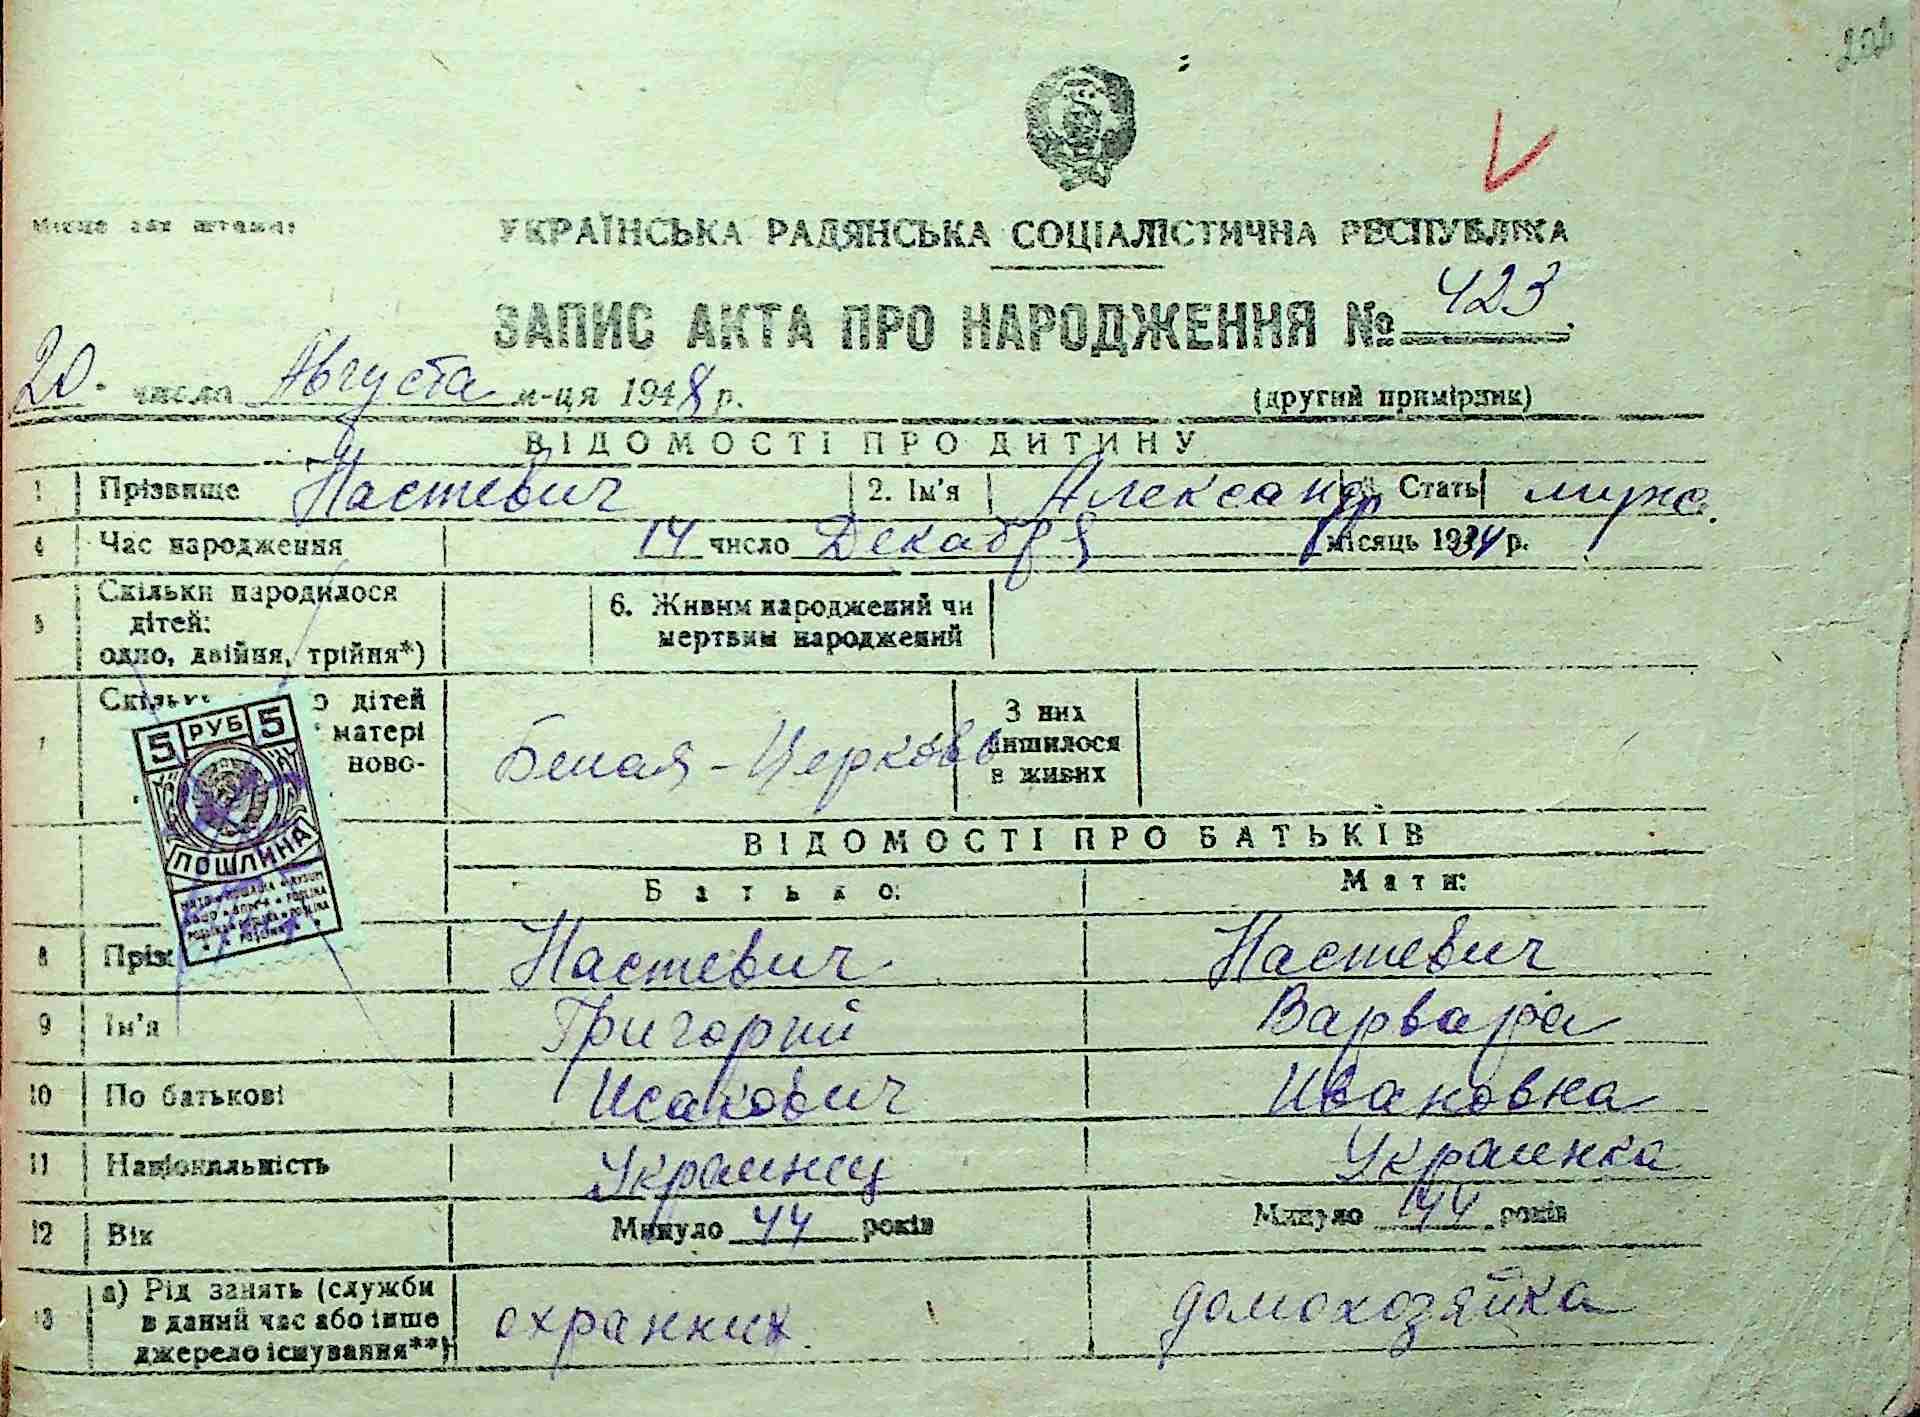 201
УКРАЇНСЬКА РАДЯНСЬКА СОЦІАЛІСТИЧНА РЕСПУБЛІКА
ЗАПИС АКТА ПРО НАРОДЖЕННЯ № 423
20. числа Августа м-ця 1948 р. (другий примірник)
ВІДОМОСТІ ПРО ДИТИНУ
1 Прізвище Настевич 2. Ім'я Александр Стать муж.
4 Час народження 14 число Декабря місяць 1934 р.
5 Скільки народилося дітей: одно, двійня, трійня*)
6. Живим народжений чи мертвим народжений
7 дітей матері ново-
Белая-Церковь
З них лишилося в живих
5 РУБ 5
ПОШЛИНА
ВІДОМОСТІ ПРО БАТЬКІВ
Батько: Мати:
8 Пріз Настевич Настевич
9 Ім'я Григорий Варвара
10 По батькові Исакович Ивановна
11 Національність Украинец Украинка
12 Вік Минуло 44 років Минуло 44 років
13 а) Рід занять (служби в даний час або інше джерело існування**) охранник. домохозяйка